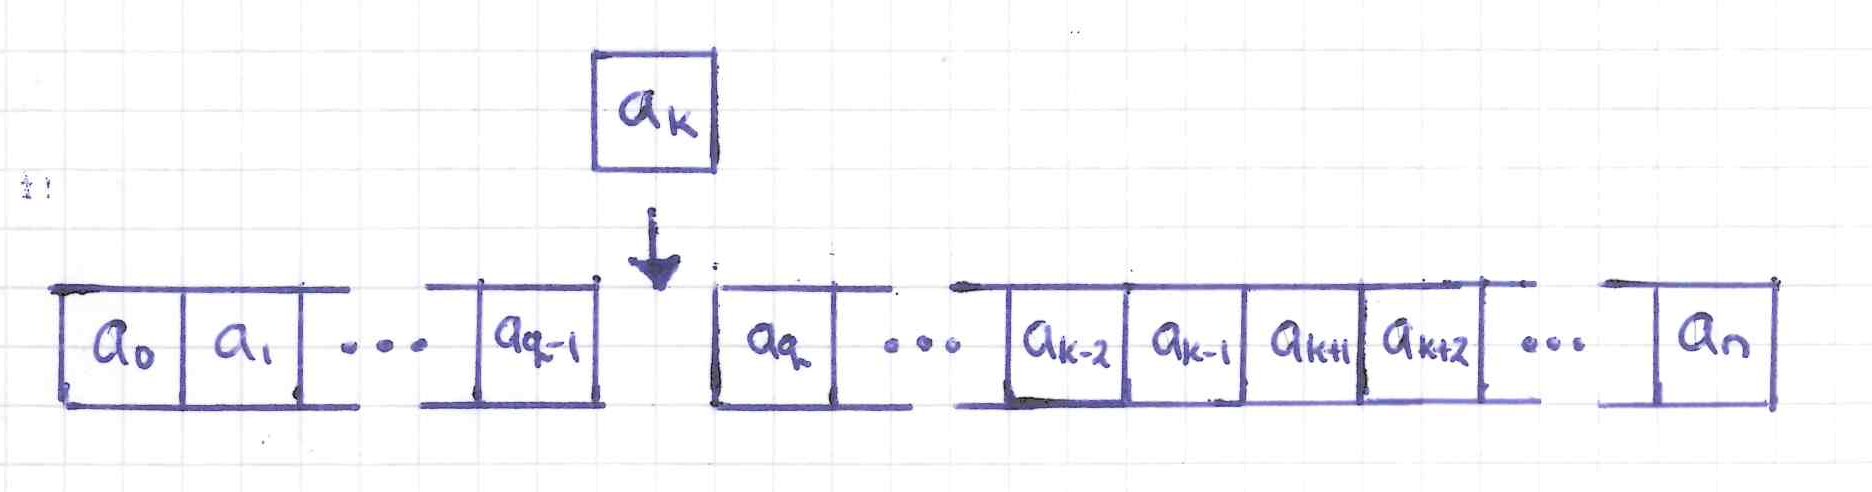 aₖ
a₀ a₁ ... a_q-1 a_q ... aₖ₋₂ aₖ₋₁ aₖ₊₁ aₖ₊₂ ... aₙ